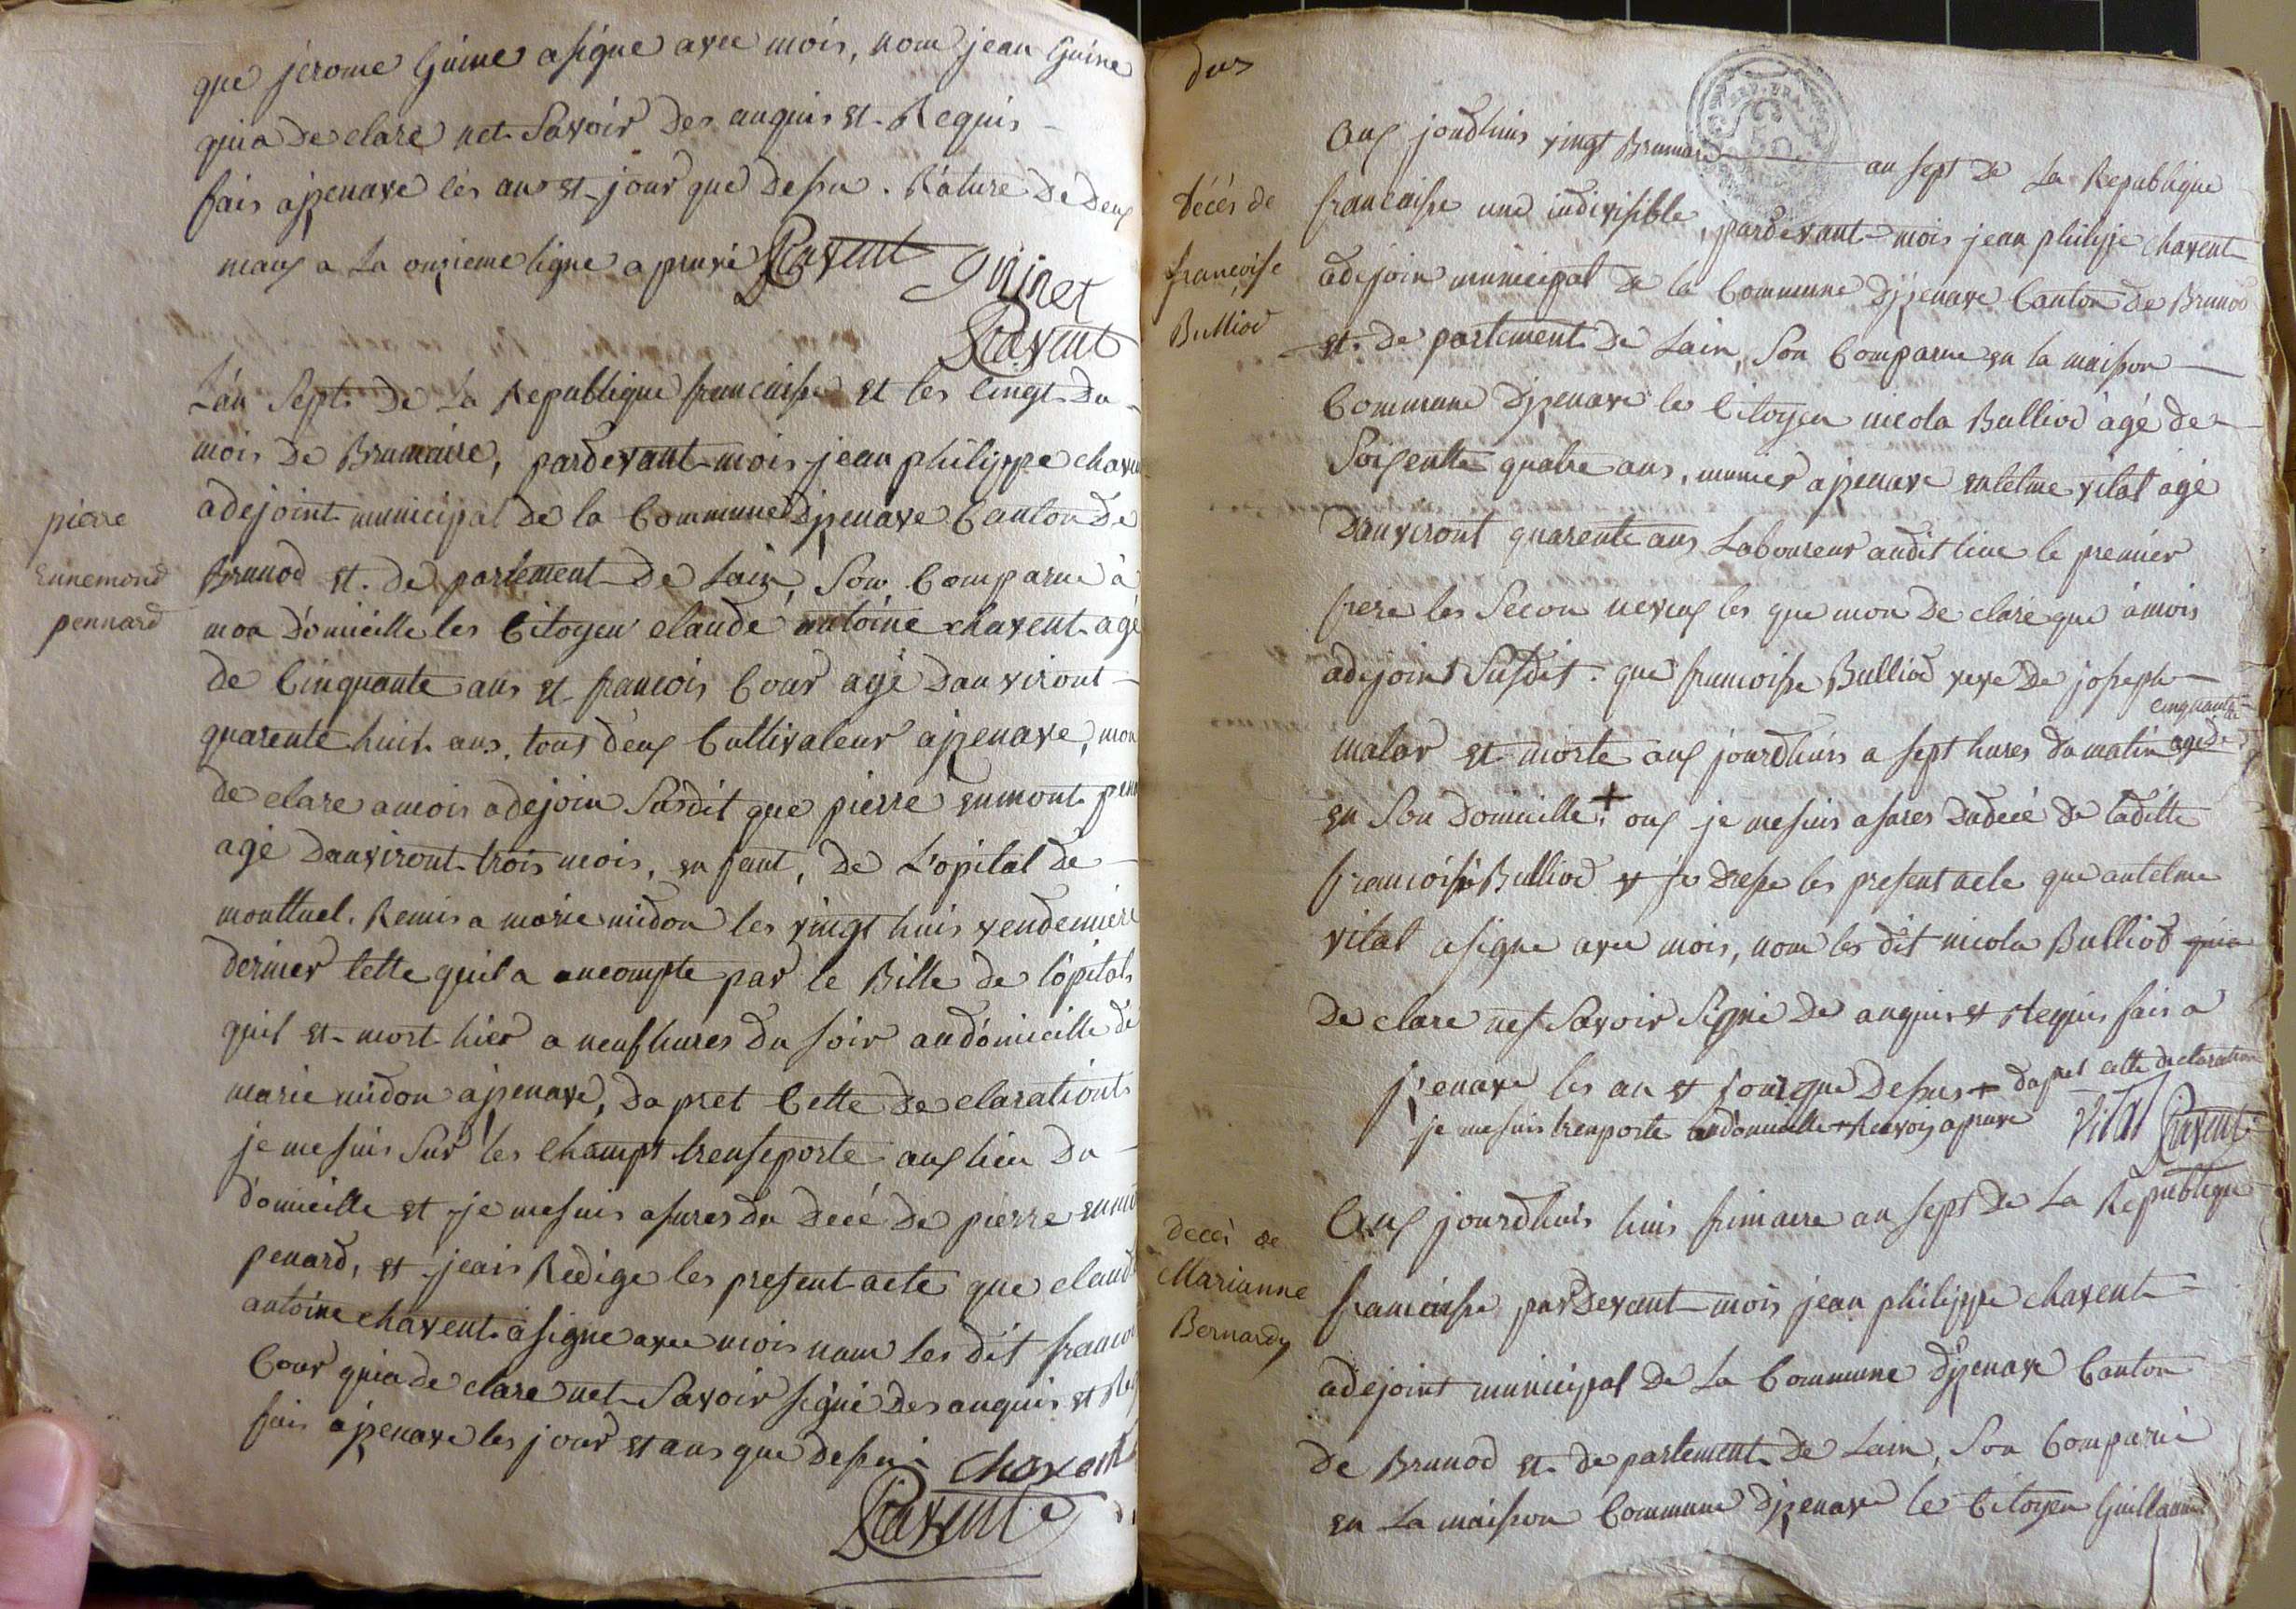 que jerome Guine a signe avec mois, nom jean Guine
quia de clare net Savoir Des anquis et Requis
fais ajpenave les ans et jour que desu . Rature De deux
maux a La onzieme ligne apruvé Chavent
Guinet
Chavent
L'an Sept De La Republique francaise et les vingt Du
mois De Brumaire, pardevant mois jean philippe chave
pierre
ennemond
pennard
adejoint municipal de la Commune Djpenave Canton De
Brunod et de partement De Lain, Son Comparue à
mon Domicille les Citoyen claude antoine chavent agé
de Cinquante ans et francois Cour agé Danviront
quarente huit ans, tous deux Cultivateur ajpenave, mon
de clare amois adejoin Susdit que pierre enmont pen
agé Danviront trois mois, en fant, De L'opital de
monttuel. Remis a marie midon les vingt huis vendemiere
dernier tette quil a encompte par le Bille de lopital
quil et mort hier a neuf hures Du soir audomicille de
marie midon ajpenave, Da pret Cette De clarationt
je me suis Sur les Champt trenseporte aux lieu Du
domicille et je mesuis asures du Decé De pierre enmo
penard, et jeais Redige les present acte que claud
antoine chavent a signe avec mois nom Les dit franco
Cour quia de clare net Savoir signé Des anquis et Re
fais ajpenave les jour et ans que desu
Chavent
Chavent
dus
REP. FRA.
Décés de
francoise
Bulliod
Aux jourdhuis vingt Brumaire an sept De La Republique
francaise une indivisible, pardevant mois jean philippe chavent
adejoin municipal De la Commune Djpenave Canton De Brunod
et De partement De Lain, Son Comparue en la maison
Commune Djpenave les Citoyen nicola Bulliod agé de
Soixente quatre ans, munier ajpenave entelme vital agé
Danviront quarente ans Laboureur audit lieu le premier
frere les Secon neveux les que mon De clare que à mois
adejoint Susdit que francoise Bulliod veve De joseph
cinquante
malar et morte aux jourdhuis a sept hures du matin agé de
en Son Domicille + oux je mesuis asures Dudécé De laditte
francoise Bulliod et je Drese les present acte que antelme
vital a signe avec mois, nom les dit nicola Bulliod quia
De clare net Savoir Signé De anquis et Requis fais a
jpenave les an et jour que Desus + dapret cette declaration
je mesuis trenporte audomicille + Renvois apruve Vital Chavent
Decés de
Marianne
Bernardy
Aux jourdhuis huis frimaire an sept De La Republique
francaise pardevant mois jean philippe chavent
adejoint municipal De La Commune Djpenave Canton
De Brunod et de partement De Lain, Son Comparue
en La maison Commune Djpenave les Citoyen Guillaume